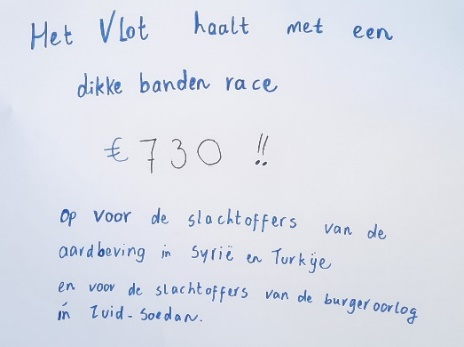 Het Vlot haalt met een
dikke banden race
€ 730 !!
Op voor de slachtoffers van de
aardbeving in Syrië en Turkije
en voor de slachtoffers van de burgeroorlog
in Zuid-Soedan.